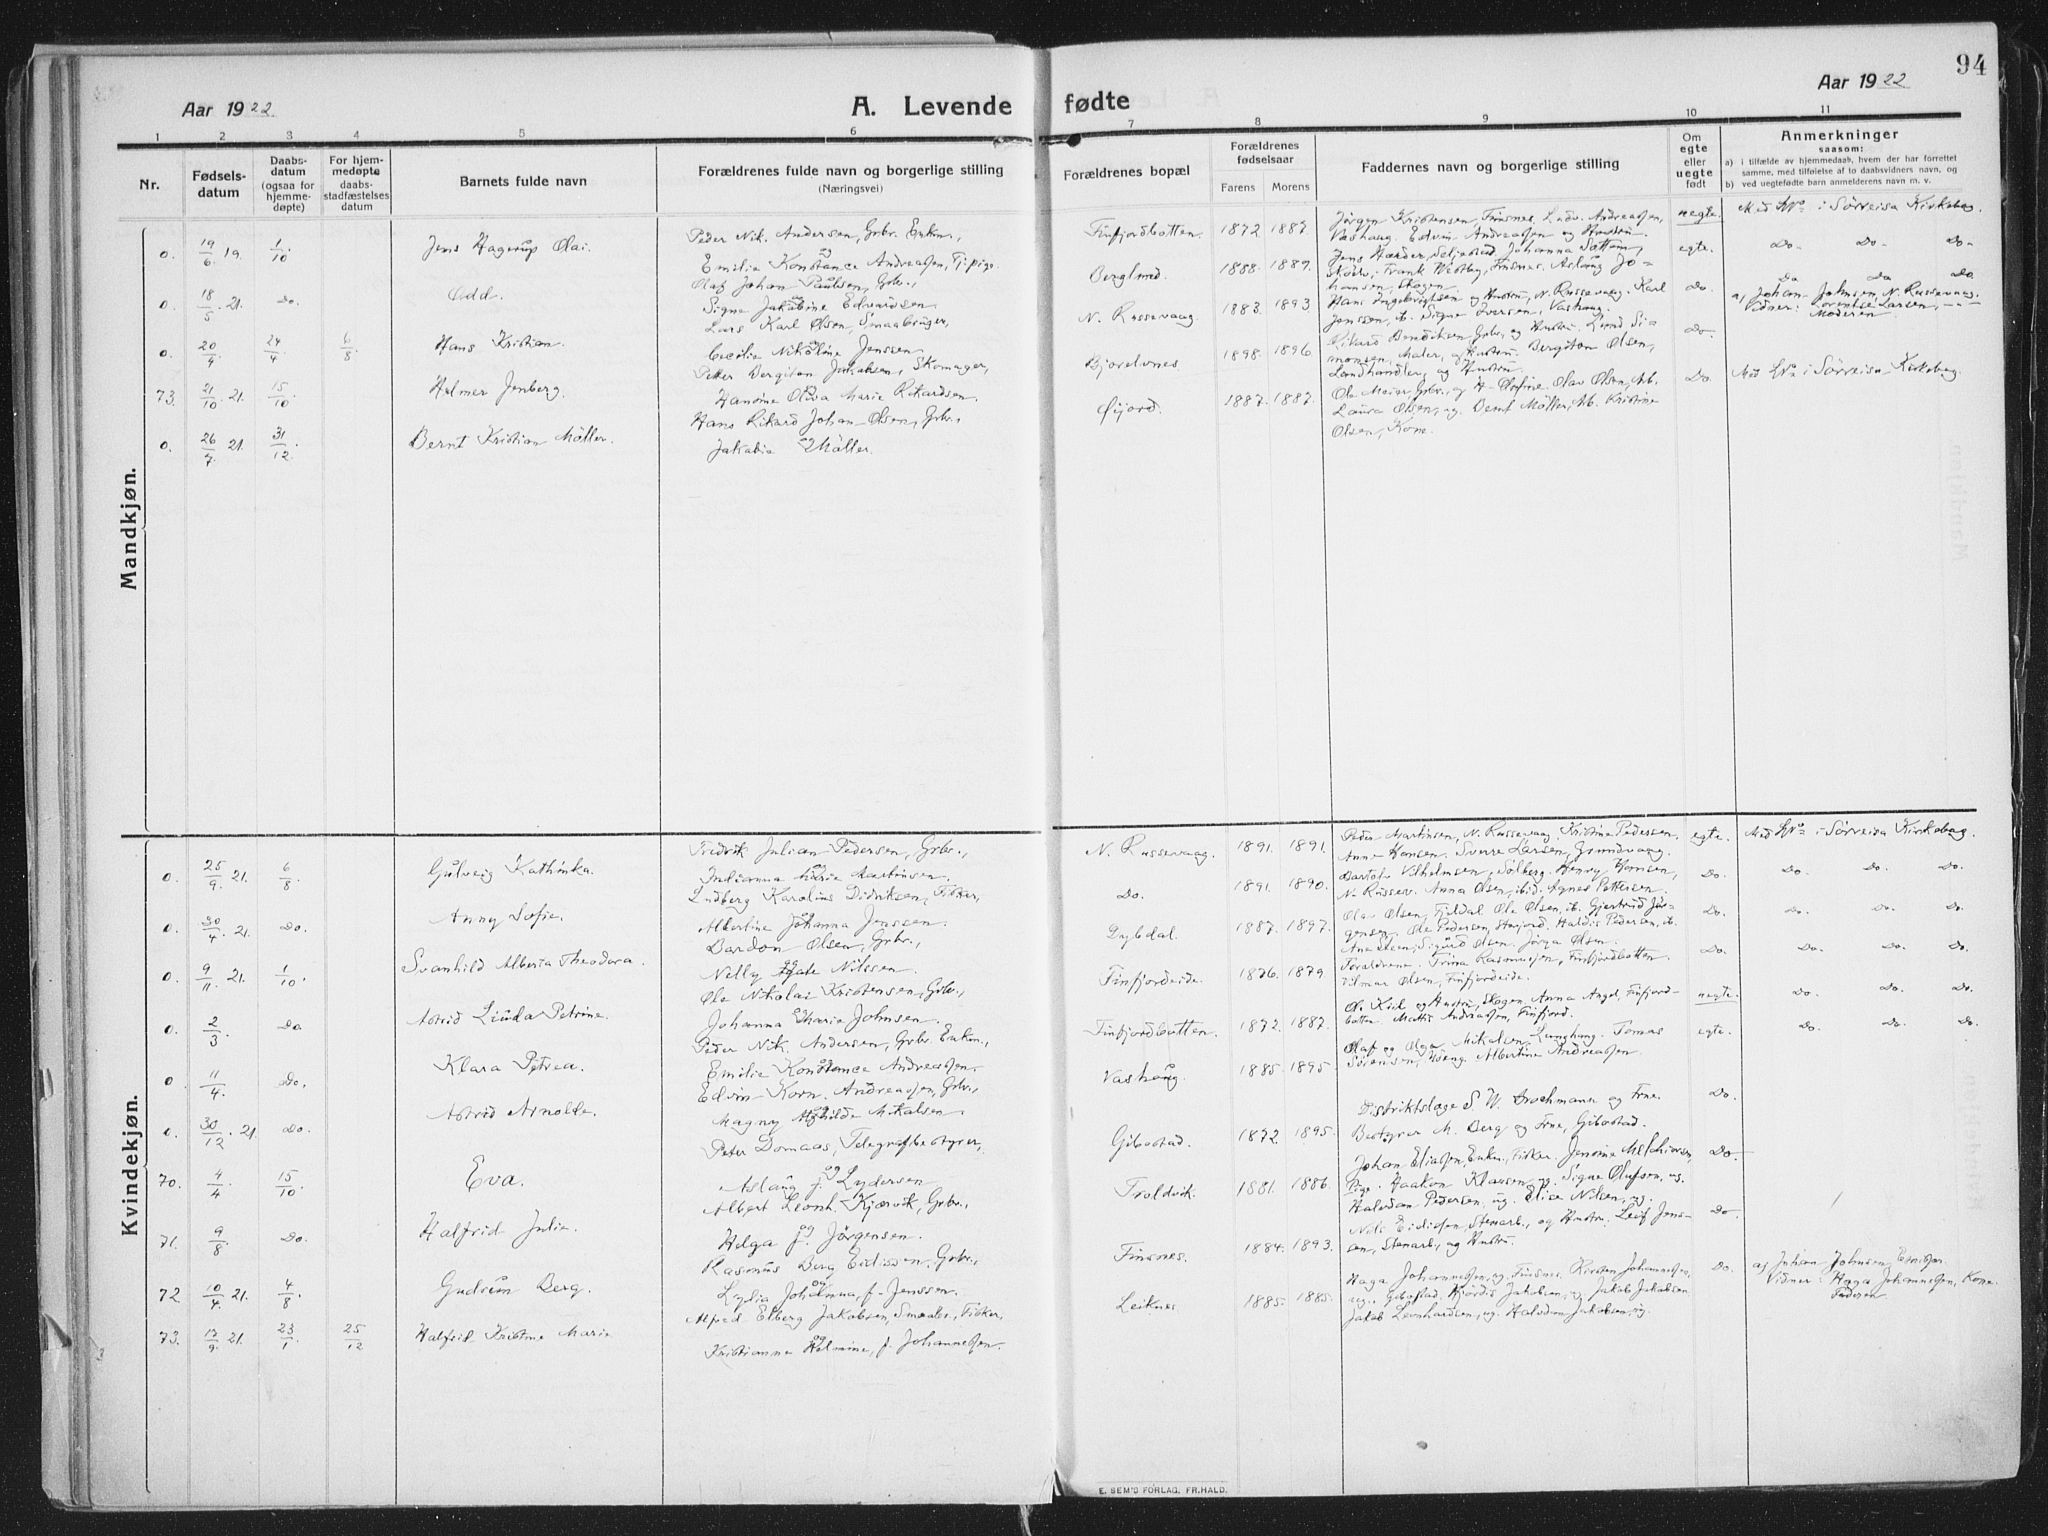 94
Aar 1922
A. Levende fødte
Aar 1922
1 2 3 4 5 6 7 8 9 10 11
Nr.
Fødsels-
datum
Daabs-
datum
(ogsaa for
hjemme-
døpte)
For hjem-
medøpte
daabs-
stadfæstelses
datum
Barnets fulde navn
Forældrenes fulde navn og borgerlige stilling
(Næringsvei)
Forældrenes bopæl
Forældrenes
fødselsaar
Farens Morens
Faddernes navn og borgerlige stilling
Om
egte
eller
uegte
født
Anmerkninger
saasom:
a) i tilfælde av hjemmedaab, hvem der har forrettet
samme, med tilføielse af to daabsvidners navn, og
b) ved uegtefødte barn anmelderens navn m. v.
Mandkjøn.
0. 19/6. 19. 1/10. Jens Hagerup Olai.
Peder Nik. Andersen, Grbr. Enkm.,
og
Emilie Konstance Andreassen, Tj.pige
Finfjordbotten. 1872 1887.
Jørgen Kristensen, Finsnes. Ludv. Andreassen,
Vashaug. Edvin Andreassen og Hustru
uegte. Med No i Sørreisa Kirkebog.
0. 18/5. 21. Do. Odd.
Olaf Johan Paulsen, Grbr.
og
Signe Jakobine Edvardsen.
1888. 1889.
Jens Hærder, Seljestad, Johanna Sættem,
Skøelv, Frank Westby, Finsnes. Aslaug Jo-
hansen, Skogen.
egte. Do. Do. Do.
0. 20/4 24/4 6/8 Hans Kristian.
Lars Karl Olsen, Smaabruger,
og
Cecilie Nikoline Jenssen.
N. Russevaag. 1883. 1893.
Hans Ingebrigtsen og Hustru, N. Russevaag. Karl
Jenssen, ib. Signe Iversen, Vashaug.
Do. Do Do Do.
a) Johan Johnsen, N. Russevaag.
Vidner: Lorentse Larsen, - -
Moderen.
73. 21/10. 21. 15/10. Helmer Jenberg.
Petter Bergiton Jakobsen, Skomager,
og
Hansine Oliva Marie Rikardsen.
Bjorelvnes 1898. 1896.
Rikard Bendiksen, Grbr., og Hustru. Lund Si-
monsen, Maler, og Hustru. Bergiton Olsen,
Landhandler, og Hustru.
Do.
0. 26/7. 21. 31/12. Bernt Kristian Möller.
Hans Rikard Johan Olsen, Grbr.,
og
Jakobia Möller.
Øijord. 1887. 1887.
Ole Meier, Grbr., og H. Olufine. Olav Olsen, Ub.
Laura Olsen, ug. Bernt Möller, Ub. Kristine
Olsen, Kone.
Do. Med No i Sørreisa Kirkebog.
Kvindekjøn.
0. 25/9. 21. 6/8 Gulveig Kathinka.
Fredrik Julian Pedersen, Grbr.,
og
Indianna Marie Martinsen.
N. Russevaag. 1891. 1891.
Peder Martinsen, N. Russevaag, Kristine Pedersen,
Anne Hansen. Sverre Larsen, Grundvaag.
egte. Med No i Sørreisa Kirkebog.
0. 30/4. 21. Do. Anny Sofie.
Ludberg Karolius Didriksen, Fisker,
og
Albertine Johanna Jenssen.
Do. 1891. 1890.
Bartolo Vilhelmsen, Solberg. Henry Hansen,
N. Russev. Anna Olsen, ibid. Agnes Pettersen.
Do. Do. Do. Do.
0. 9/11. 21. 1/10. Svanhild Alberta Theodora.
Bardon Olsen, Grbr.,
og
Nelly Nilssen.
Dybdal. 1887. 1897.
Olav Olsen, Fjeldal. Ole Olsen, ib. Gjertrud Jör-
gensen. Ole Pedersen, Storjord. Haldis Pedersen, ib.
Do. Do. Do. Do.
0. 2/3. Do. Astrid Linda Petrine.
Ole Nikolai Kristensen, Grbr.,
og
Johanna Marie Johnsen.
Finfjordeide. 1876. 1879.
Forældrene. Trina Rasmussen, Finfjordbotten.
Hilmar Olsen, Finfjordeide.
Do. Do. Do. Do.
0. 11/4. Do. Klara Petrea.
Peder Nik. Andersen, Grbr. Enkm.,
og
Emilie Konstance Andreassen.
Finfjordbotten. 1872. 1887.
Ole Kiil og Hustru, Skogen, Anna Angel, Finfjord-
botten. Mattis Andreassen, Finfjord.
uegte. Do. Do. Do.
0. 30/12. 21. Do. Astrid Arnolde.
Edvin Korn. Andreassen, Grbr.,
og
Magny Mikalsen.
Vashaug. 1885. 1895.
Olaf og Olga Mikalsen, Tomas
Sörensen, Albertine Andreassen
egte. Do. Do. Do.
70. 4/4 15/10. Eva.
Peter Domaas, Telegrafbestyrer,
og
Aslaug f. Lydersen
Gibostad. 1872. 1895.
Distriktslæge S. W. Brochmann og Frue.
Bestyrer M. Berg og Frue, Gibostad.
Do.
71. 9/8. Do. Halfrid Julie.
Albert Leonh. Kjærvik, Grbr.,
og
Helga f. Jörgensen.
Troldvik. 1881. 1886.
Johan Eliassen, Enkm., Fisker. Jensine Melchiorsen,
Pige. Haakon Klausen, ug. Signe Olufsen, ug.
Halvdan Pedersen, ug. Elise Nilsen, ug.
Do.
72. 10/4. 21. 4/8 Gudrun Berg.
Rasmus Berg Eidissen, Grbr.,
og
Lydia Johanna, f. Jenssen.
Finsnes. 1884. 1893.
Nils Eidissen, Stenarb., og Hustru. Leif Jens-
sen, Stenarb., og Hustru.
Do.
73. 17/9. 21. 23/1 25/12 Halfrid Kristine Marie
Alfred Elberg Jakobsen, Smaabr., Fisker,
og
Kristianne Helmine, f. Johannessen.
Leiknes. 1885. 1885.
Haga Johannessen, ug. Finsnes. Kirsten Johannessen,
ug. Gibostad. Hjördis Jakobsen, ug. Jakob Jakobsen
Jakob Leonhardsen, ug. Halvdan Jakobsen, ug.
Do.
a) Johan Johnsen,
Vidner: Haga Johannessen, Kone.
Faderen
E. SEM'S FORLAG, FR.HALD.